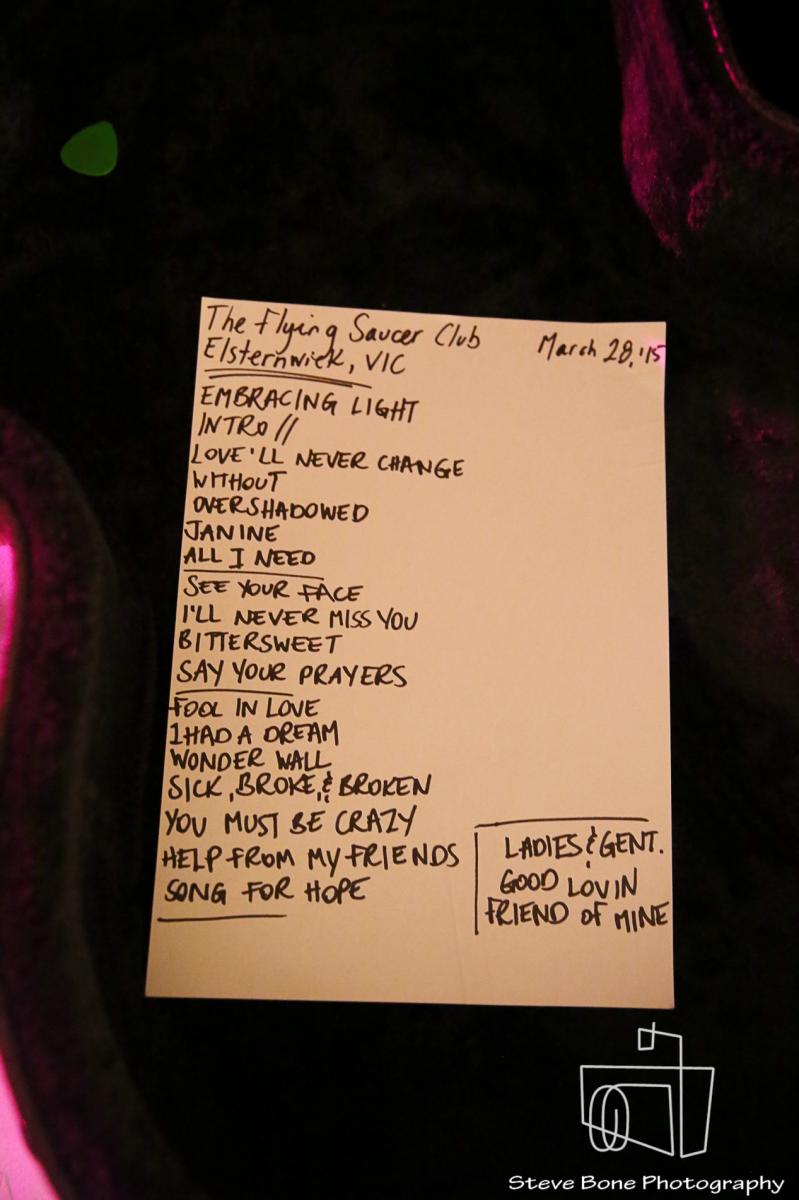 The Flying Saucer Club
Elsternwick, VIC
March 28, '15
EMBRACING LIGHT
INTRO //
LOVE'LL NEVER CHANGE
WITHOUT
OVERSHADOWED
JANINE
ALL I NEED
SEE YOUR FACE
I'LL NEVER MISS YOU
BITTERSWEET
SAY YOUR PRAYERS
FOOL IN LOVE
I HAD A DREAM
WONDER WALL
SICK, BROKE, & BROKEN
YOU MUST BE CRAZY
HELP FROM MY FRIENDS
SONG FOR HOPE
LADIES & GENT.
GOOD LOVIN
FRIEND OF MINE
Steve Bone Photography